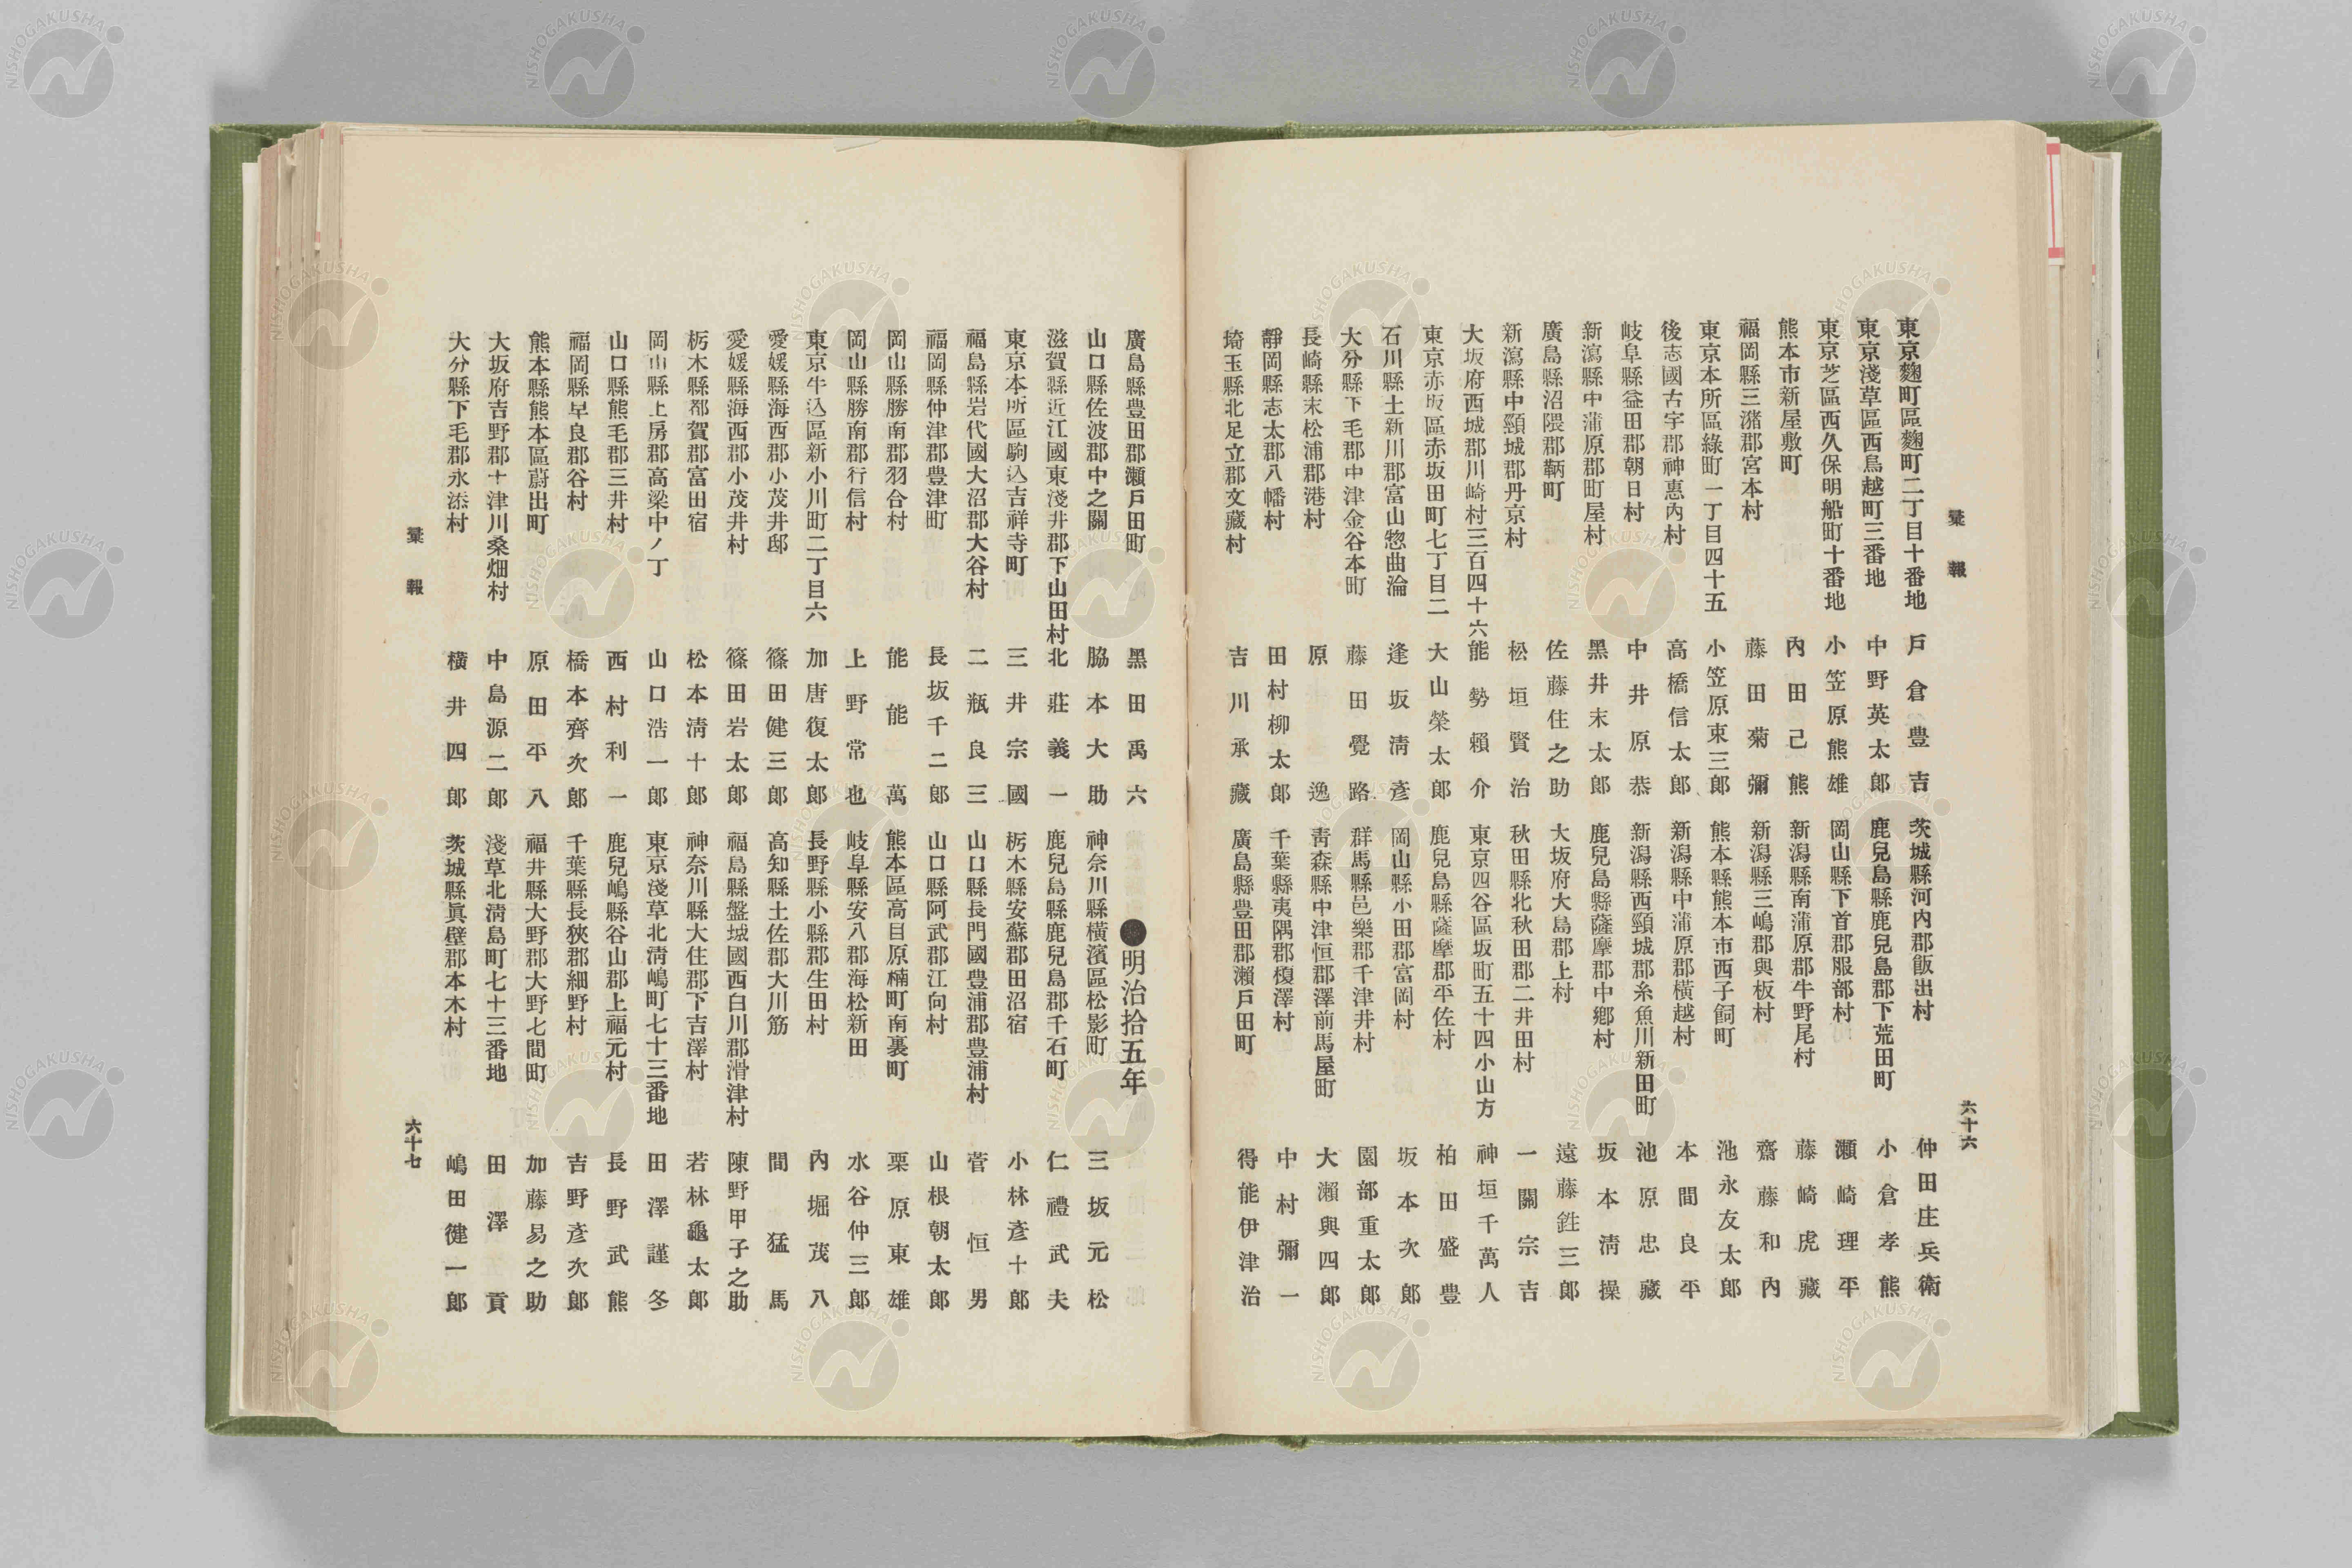 彙報
東京麴町區麴町二丁目十番地 戸倉豊吉
東京淺草區西鳥越町三番地 中野英太郎
東京芝區西久保明船町十番地 小笠原熊雄
熊本市新屋敷町 內田己熊
福岡縣三潴郡宮本村 藤田菊彌
東京本所區綠町一丁目四十五 小笠原東三郎
後志國古宇郡神惠內村 高橋信太郎
岐阜縣益田郡朝日村 中井原恭
新瀉縣中蒲原郡町屋村 黑井末太郎
廣島縣沼隈郡鞆町 佐藤住之助
新瀉縣中頸城郡丹京村 松垣賢治
大坂府西城郡川崎村三百四十六 能勢賴介
東京赤坂區赤坂田町七丁目二 大山榮太郎
石川縣上新川郡富山惣曲淪 逢坂淸彥
大分縣下毛郡中津金谷本町 藤田覺路
長崎縣末松浦郡港村 原逸
靜岡縣志太郡八幡村 田村柳太郎
埼玉縣北足立郡文藏村 吉川承藏
茨城縣河內郡飯出村 仲田庄兵衛
鹿兒島縣鹿兒島郡下荒田町 小倉孝熊
岡山縣下首郡服部村 瀬崎理平
新潟縣南蒲原郡牛野尾村 藤崎虎藏
新潟縣三嶋郡與板村 齋藤和內
熊本縣熊本市西子飼町 池永友太郎
新潟縣中蒲原郡橫越村 本間良平
新潟縣西頸城郡糸魚川新田町 池原忠藏
鹿兒島縣薩摩郡中鄕村 坂本淸操
大坂府大島郡上村 遠藤銈三郎
秋田縣北秋田郡二井田村 一關宗吉
東京四谷區坂町五十四小山方 神垣千萬人
鹿兒島縣薩摩郡平佐村 柏田盛豊
岡山縣小田郡富岡村 坂本次郎
群馬縣邑樂郡千津井村 園部重太郎
靑森縣中津恒郡澤前馬屋町 大瀨與四郎
千葉縣夷隅郡榎澤村 中村彌一
廣島縣豊田郡瀨戸田町 得能伊津治
六十六
廣島縣豊田郡瀨戸田町 黑田禹六
山口縣佐波郡中之關 脇本大助
滋賀縣近江國東淺井郡下山田村 北莊義一
東京本所區駒込吉祥寺町 三井宗國
福島縣岩代國大沼郡大谷村 二瓶良三
福岡縣仲津郡豊津町 長坂千二郎
岡山縣勝南郡羽合村 能能萬
岡山縣勝南郡行信村 上野常也
東京牛込區新小川町二丁目六 加唐復太郎
愛媛縣海西郡小茂井邸 篠田健三郎
愛媛縣海西郡小茂井村 篠田岩太郎
栃木縣都賀郡富田宿 松本淸十郎
岡山縣上房郡高梁中ノ丁 山口浩一郎
山口縣熊毛郡三井村 西村利一
福岡縣早良郡谷村 橋本齊次郎
熊本縣熊本區蔚出町 原田平八
大坂府吉野郡十津川桑畑村 中島源二郎
大分縣下毛郡永添村 橫井四郎
●明治拾五年
神奈川縣橫濱區松影町 三坂元松
鹿兒島縣鹿兒島郡千石町 仁禮武夫
栃木縣安蘇郡田沼宿 小林彥十郎
山口縣長門國豊浦郡豊浦村 菅恒男
山口縣阿武郡江向村 山根朝太郎
熊本區高目原楠町南裏町 栗原東雄
岐阜縣安八郡海松新田 水谷仲三郎
長野縣小縣郡生田村 內堀茂八
高知縣土佐郡大川筋 間猛馬
福島縣盤城國西白川郡滑津村 陳野甲子之助
神奈川縣大住郡下吉澤村 若林龜太郎
東京淺草北淸嶋町七十三番地 田澤謹冬
鹿兒嶋縣谷山郡上福元村 長野武熊
千葉縣長狹郡細野村 吉野彥次郎
福井縣大野郡大野七間町 加藤易之助
淺草北淸島町七十三番地 田澤貢
茨城縣眞壁郡本木村 嶋田健一郎
彙報
六十七